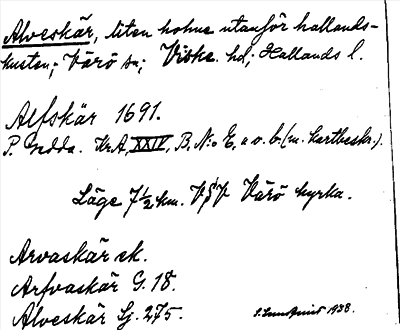 Alveskär, liten holme utanför hallands-
kusten; Värö sn; Viske hd; Hallands l.
Alfskär 1691.
P. Gedda. Kr.A, XXIV, B. N:o E, a o. b. (m. kartbeskr.).
Läge 7½ km. VSV Värö kyrka.
Arvaskär ek.
Arfvaskär G. 18.
Alveskär Sj. 275.
S. Lundquist 1938.